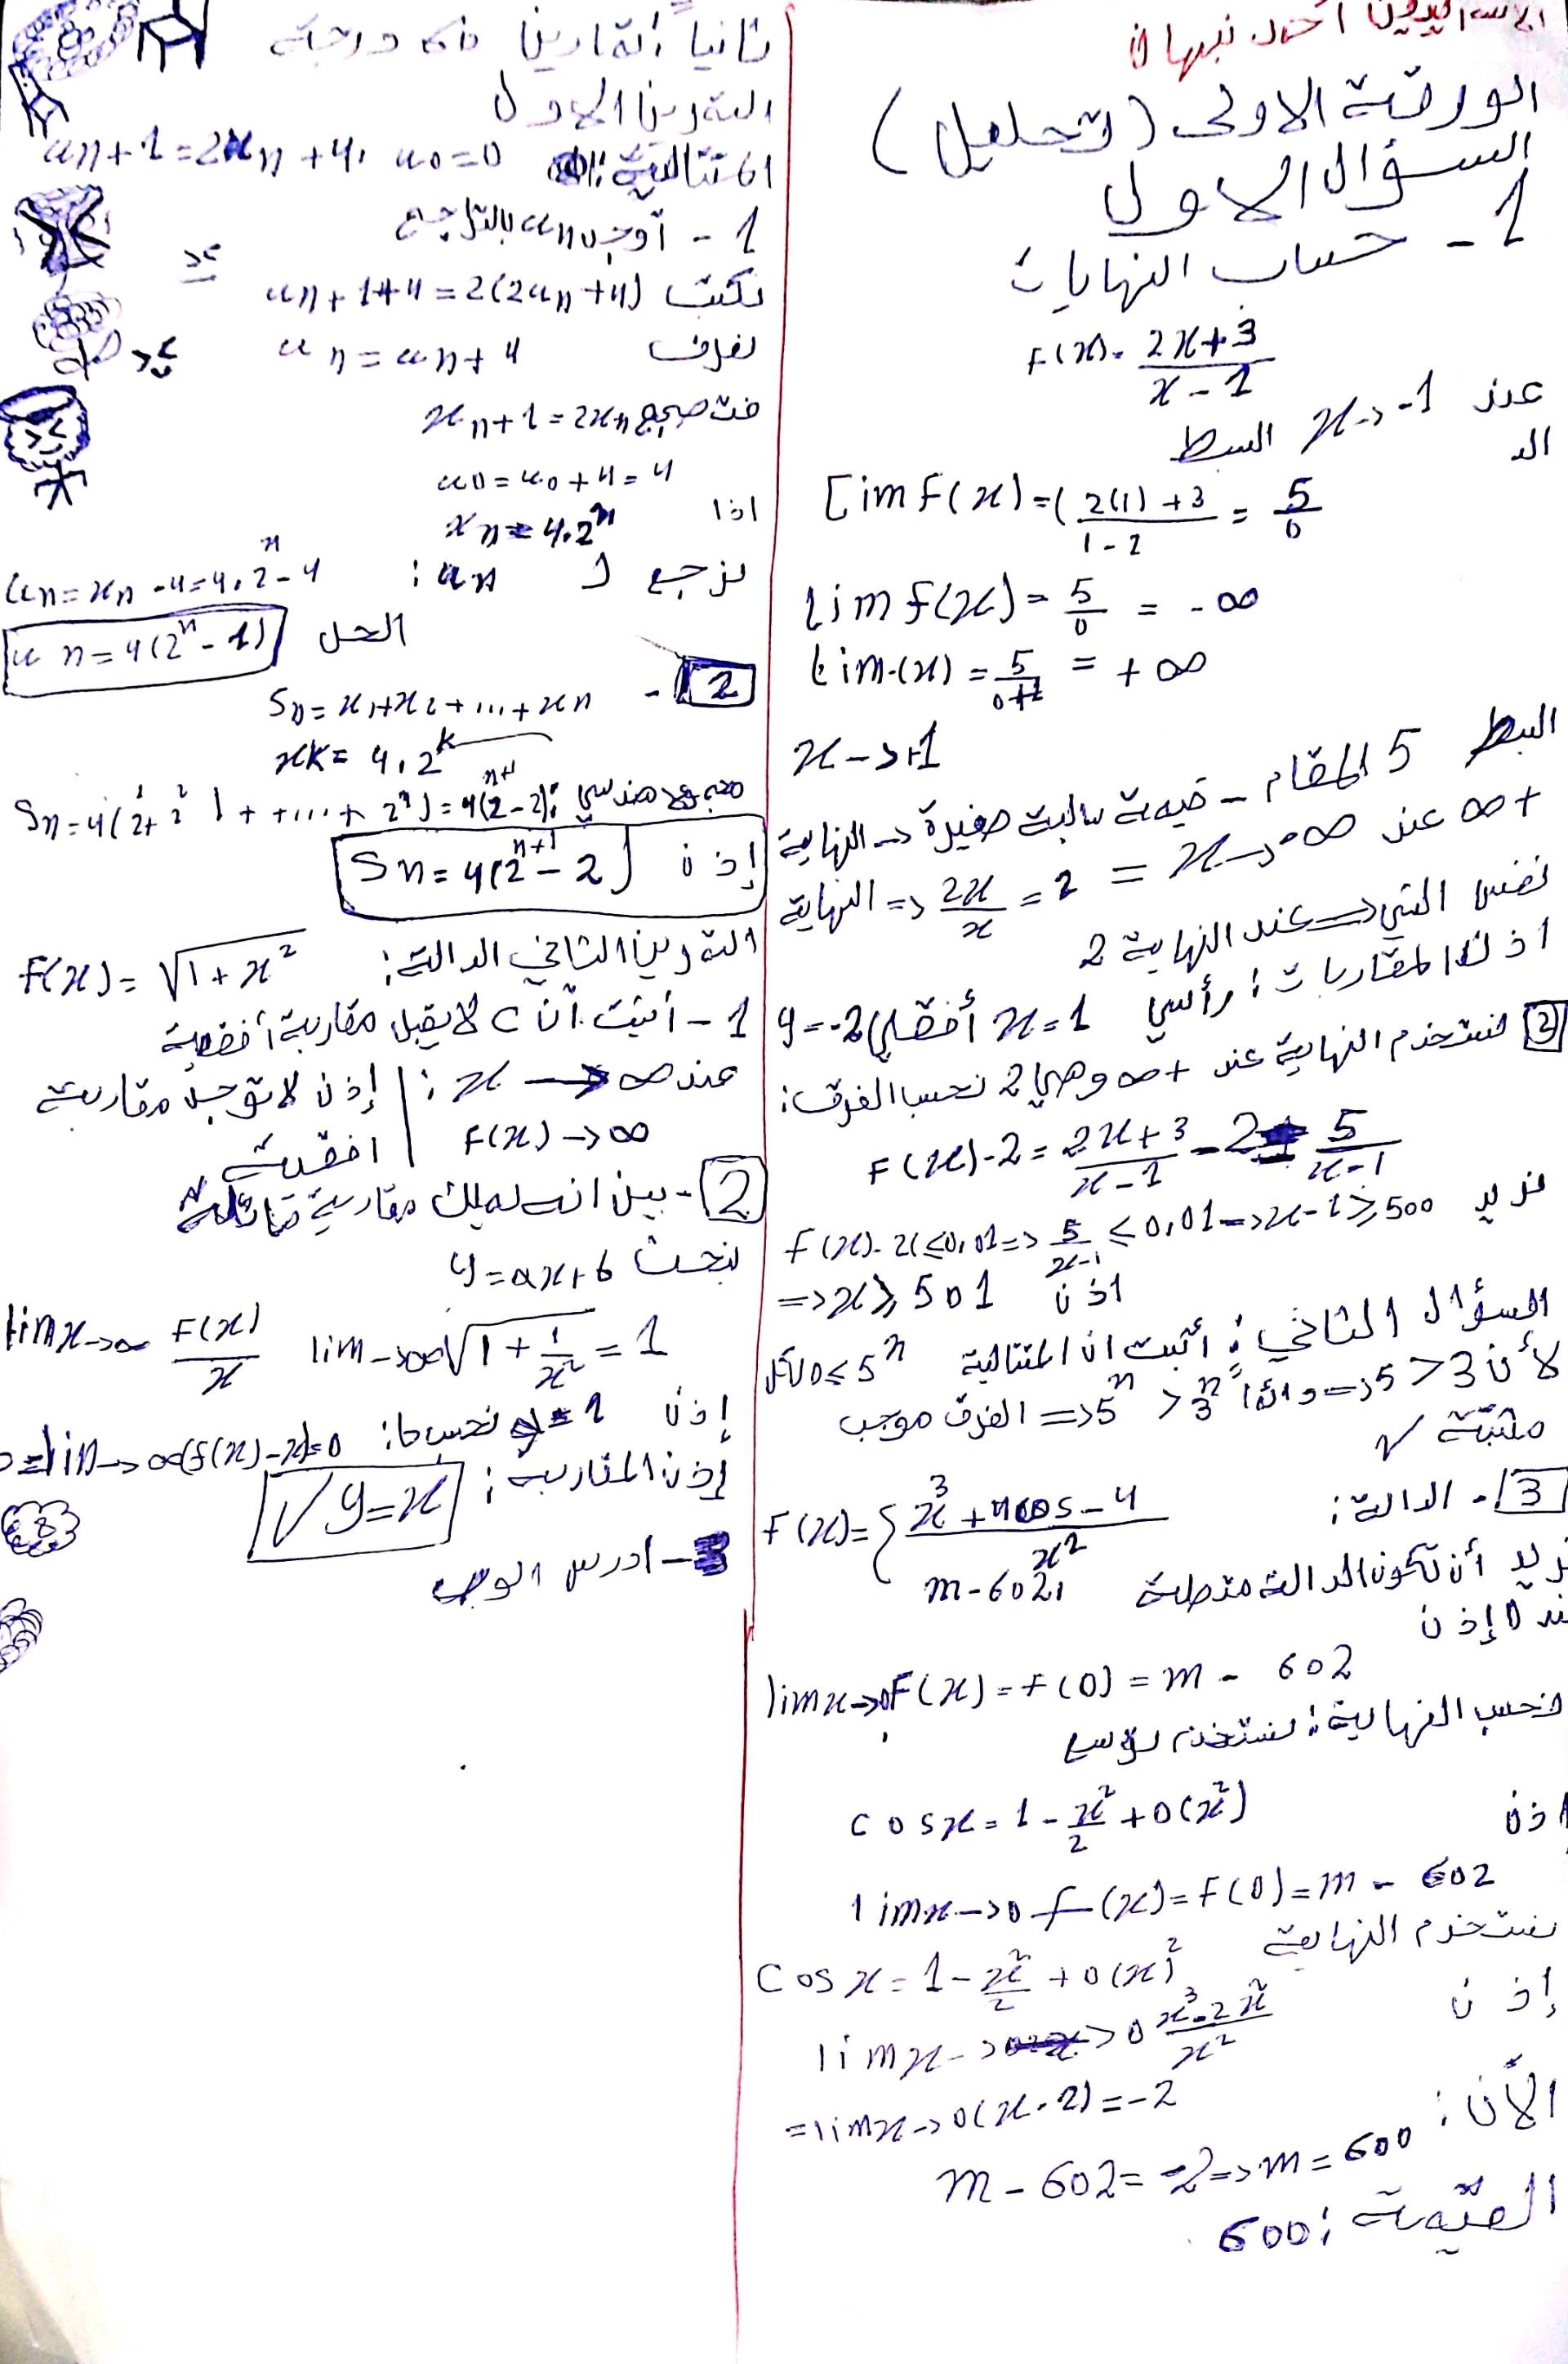 احمد نبهان
الورقة الاولى (تحليل)
السؤال الاول
1 - حساب النهايات
F(x) = 2x+3 / x-1
عند x->-1 البسط
Lim F(x) = (2(1)+3 / 1-2 = 5/0
lim f(x) = 5/0 = -∞
lim(x) = 5/0+ = +∞
x->+1
البسط 5 المقام - قيمة سالبة صغيرة -> النهاية
+∞ عند x->-∞ = 2 = 2x/x <= النهاية
نفس الشي => عند النهاية 2
اذن المقاربات: رأسي x=1 أفقي y=-2
2 نستخدم النهاية عند +∞ وهي 2 نحسب الفرق:
F(x)-2 = 2x+3 / x-1 - 2 = 5 / x-1
نريد f(x)-2(≤0,01=> 5/x-1 ≤ 0,01=>x-1≥500
=>x≥501 اذن
السؤال الثاني: أثبت ان المتتالية 5ⁿ
لأن 3<5 => دائماً 3ⁿ<5ⁿ => الفرق موجب
مثبتة ✓
3 - الدالة: F(x)={ x³+4cos-4 / x²
m-602,
نريد أن تكون الدالة متصلة
عند 0 إذن
limx->0F(x)=f(0)=m-602
نحسب النهاية: نستخدم توسع
cosx=1-x²/2+0(x²) اذن
limx->0 f(x)=F(0)=m-602
نستخدم النهاية
Cosx=1-x²/2+0(x)²
إذن
limx->0 x³-2x²/x²
=limx->0(x-2)=-2
الأن:
m-602=-2=>m=600
القيمة: 600
ثانياً: التمارين درجة
التمرين الاول
المتتالية: un+1=2xn+4, u0=0
1 - أوجد un بالتراجع
نكتب un+1+4=2(2un+4)
نعرف un=un+4
xn+1=2xn
u0=u0+4=4
اذا xn=4.2ⁿ
نرجع لـ un: un=xn-4=4.2ⁿ-4
الحل un=4(2ⁿ-1)
2 - Sn=x1+x2+...+xn
xk=4.2ᵏ
مجموع هندسي: Sn=4(2¹+2²++...+2ⁿ)=4(2ⁿ⁺¹-2)
إذن Sn=4(2ⁿ⁺¹-2)
التمرين الثاني الدالة: F(x)=√1+x²
1 - أثبت أن C لا يقبل مقاربة أفقية
عند x->∞: إذن لا توجد مقاربة
F(x)->∞ افقية
2 - بين انه يملك مقاربة مائلة
نبحث y=ax+b
limx->∞ F(x)/x lim->∞√1+1/x²=1
إذن a=1 نحسب b: =lim->∞(f(x)-x)=0
إذن المقاربة: ✓y=x
3 - ادرس الوضع